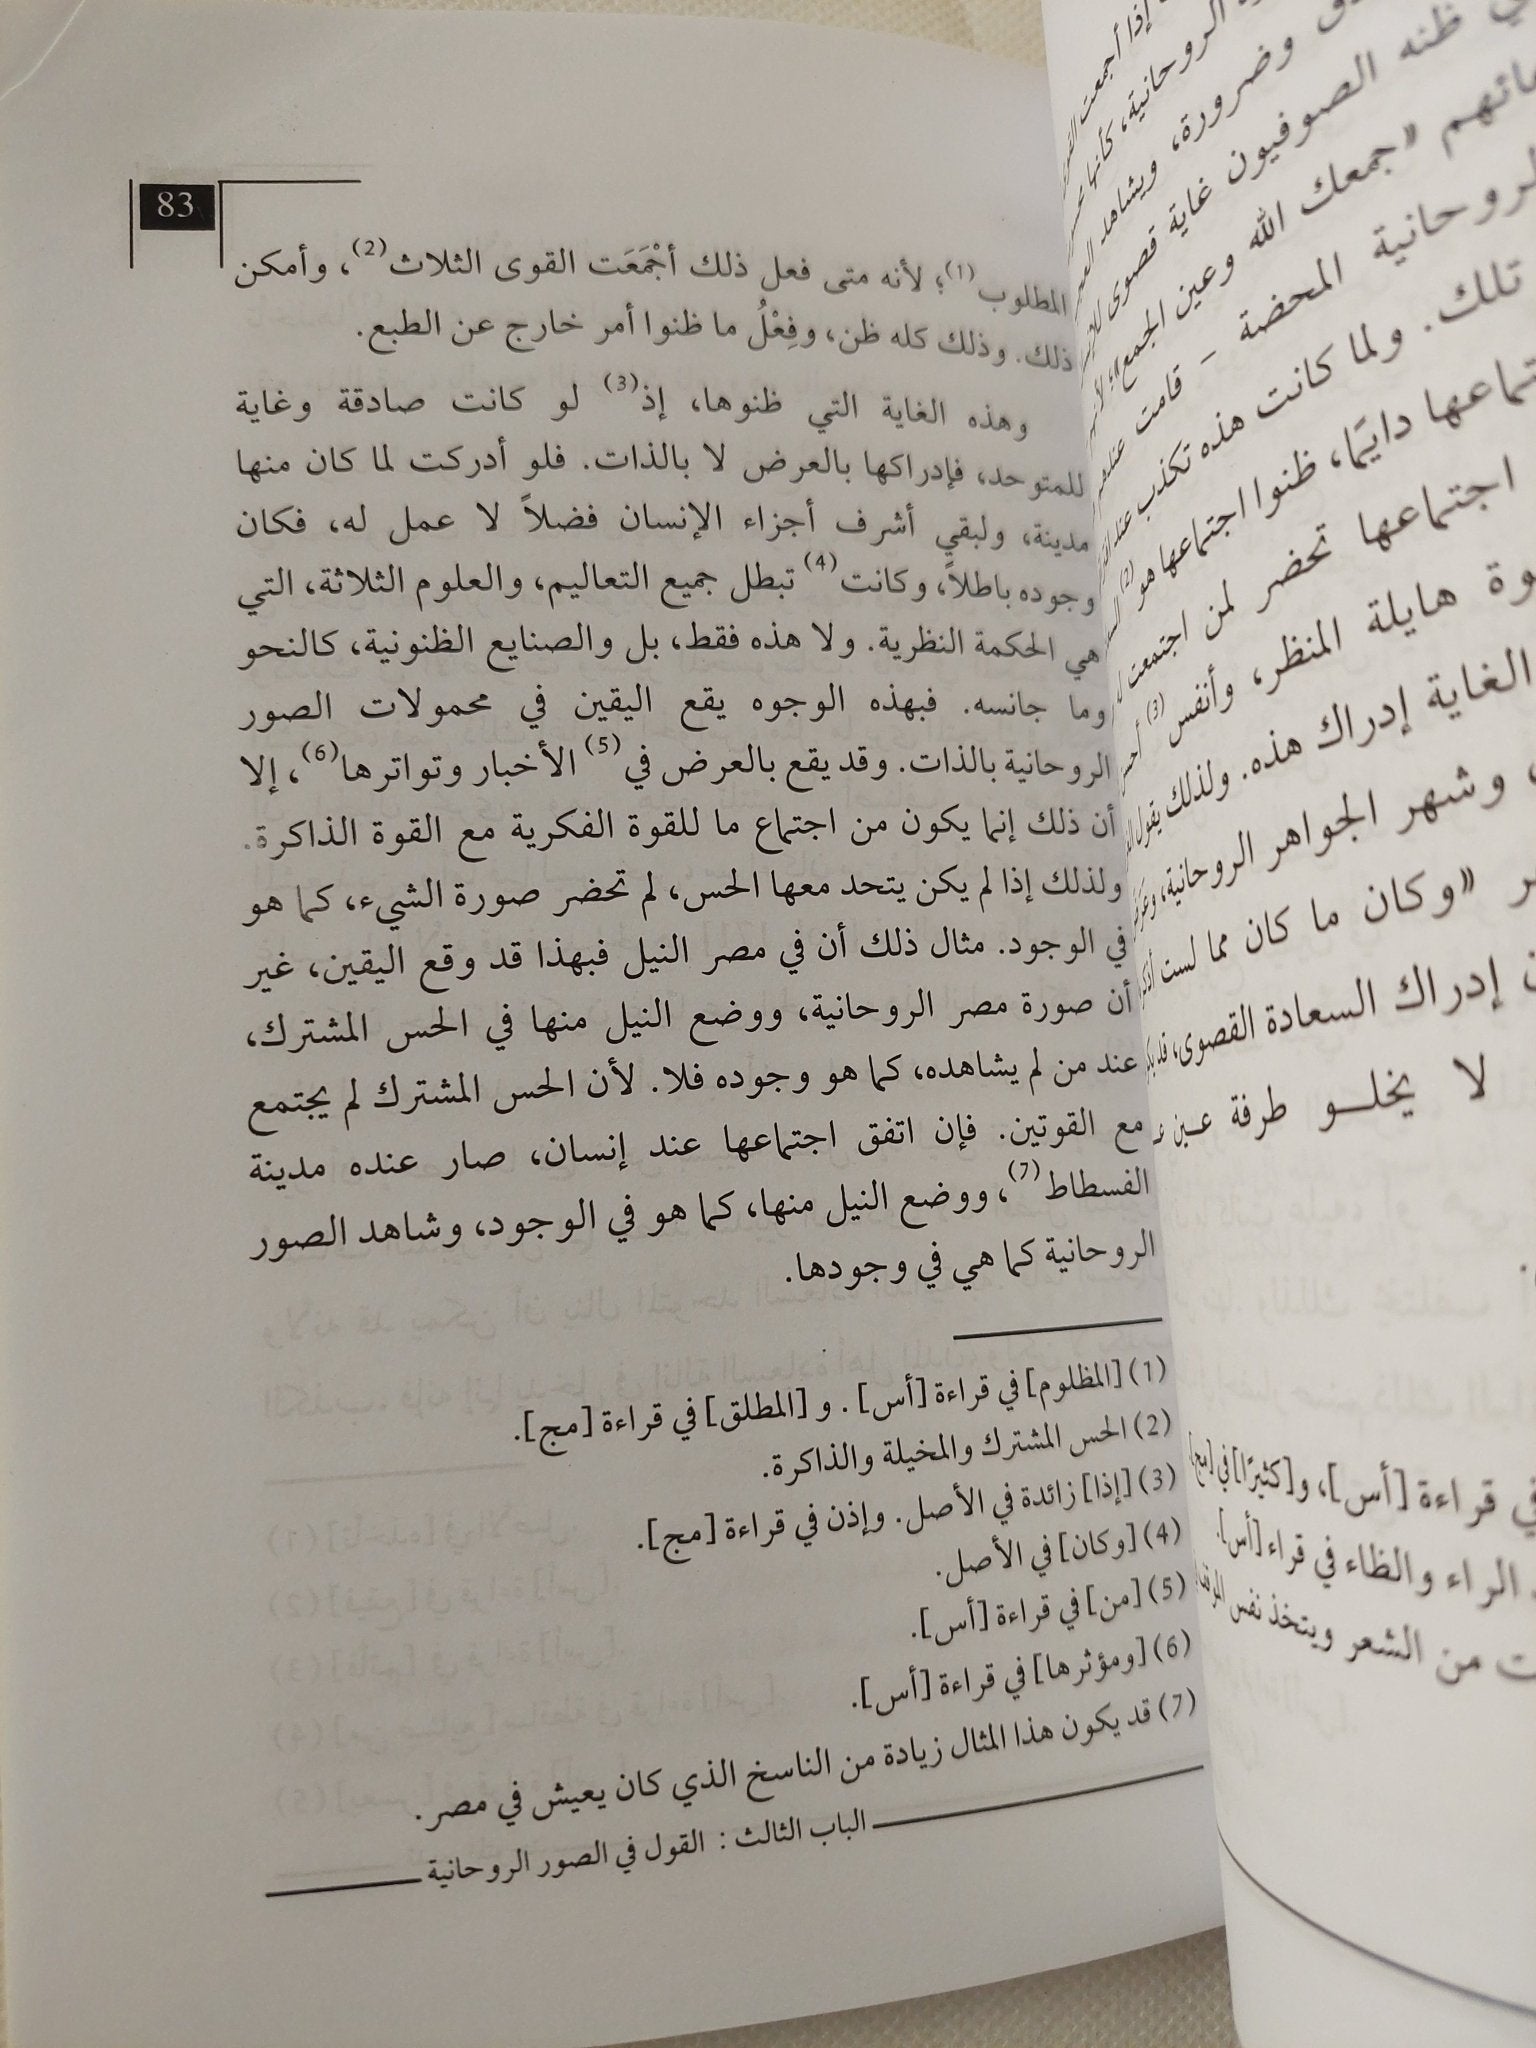 83
المطلوب(1)؛ لأنه متى فعل ذلك أجْمَعَت القوى الثلاث(2)، وأمكن
ذلك. وذلك كله ظن، وفِعْلُ ما ظنوا أمر خارج عن الطبع.
وهذه الغاية التي ظنوها، إذ(3) لو كانت صادقة وغاية
للمتوحد، فإدراكها بالعرض لا بالذات. فلو أدركت لما كان منها
مدينة، ولبقي أشرف أجزاء الإنسان فضلاً لا عمل له، فكان
وجوده باطلاً، وكانت(4) تبطل جميع التعاليم، والعلوم الثلاثة، التي
هي الحكمة النظرية. ولا هذه فقط، بل والصنايع الظنونية، كالنحو
وما جانسه. فبهذه الوجوه يقع اليقين في محمولات الصور
الروحانية بالذات. وقد يقع بالعرض في(5) الأخبار وتواترها(6)، إلا
أن ذلك إنما يكون من اجتماع ما للقوة الفكرية مع القوة الذاكرة.
ولذلك إذا لم يكن يتحد معها الحس، لم تحضر صورة الشيء، كما هو
في الوجود. مثال ذلك أن في مصر النيل فبهذا قد وقع اليقين، غير
أن صورة مصر الروحانية، ووضع النيل منها في الحس المشترك،
عند من لم يشاهده، كما هو وجوده فلا. لأن الحس المشترك لم يجتمع
مع القوتين. فإن اتفق اجتماعها عند إنسان، صار عنده مدينة
الفسطاط(7)، ووضع النيل منها، كما هو في الوجود، وشاهد الصور
الروحانية كما هي في وجودها.
(1) [المظلوم] في قراءة [أس]. و [المطلق] في قراءة [مج].
(2) الحس المشترك والمخيلة والذاكرة.
(3) [إذا] زائدة في الأصل. وإذن في قراءة [مج].
(4) [وكان] في الأصل.
(5) [من] في قراءة [أس].
(6) [ومؤثرها] في قراءة [أس].
(7) قد يكون هذا المثال زيادة من الناسخ الذي كان يعيش في مصر.
الباب الثالث : القول في الصور الروحانية
إذا أجمعت
الروحانية، كأنها
وضرورة، ويشاهد
ظنه الصوفيون غاية قصوى
«جمعك الله وعين الجمع»؛
المحضة – قامت
تلك. ولما كانت هذه تكذب
دايمًا، ظنوا اجتماعها هو(2)
اجتماعها تحضر لمن اجتمعت
هايلة المنظر، وأنفس(3)
الغاية إدراك هذه. ولذلك يقول
وشهر الجواهر الروحانية،
«وكان ما كان مما لست
إدراك السعادة القصوى،
لا يخلو طرفة عين
في قراءة [أس]، و[كثيرًا] في [مج]
الراء والظاء في قراء [أس].
من الشعر ويتخذ نفس